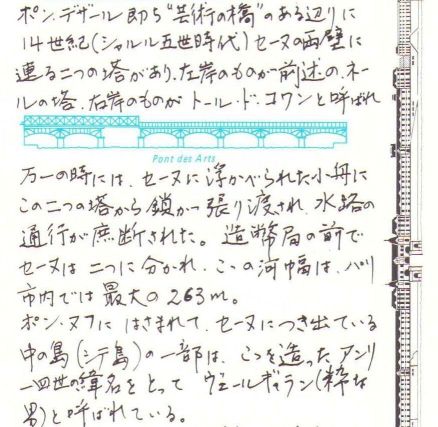 ポン・デザール即ち"芸術の橋"のある辺りに
14世紀(シャルル五世時代)セーヌの両壁に
連る二つの塔があり、左岸のものが前述の、ネー
ルの塔、右岸のものがトール・ド・コワンと呼ばれ
Pont des Arts
万一の時には、セーヌに浮かべられた小舟に
この二つの塔から鎖かつ張り渡され、水路の
通行が庶断された。造幣局の前で
セーヌは二つに分かれ、この河幅は、パリ
市内では最大の263m。
ポン・ヌフにはさまれて、セーヌにつき出ている
中の島(シテ島)の一部は、こつを造ったアンリ
四世の緯名をとって ヴェールギャラン(粋な
男)と呼ばれている。